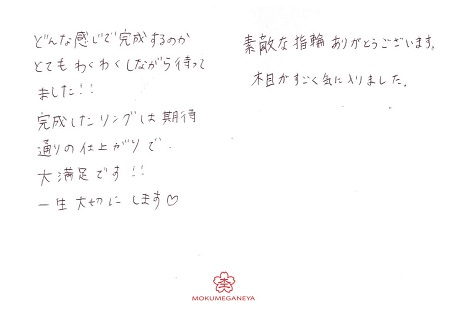 どんな感じで完成するのか
とてもわくわくしながら待って
ました!!
完成したリングは期待
通りの仕上がりで、
大満足です!!
一生大切にします♡
素敵な指輪ありがとうございます。
木目がすごく気に入りました。
MOKUMEGANEYA